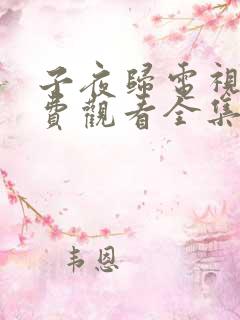 子夜歸電視
費觀看全集
韦恩